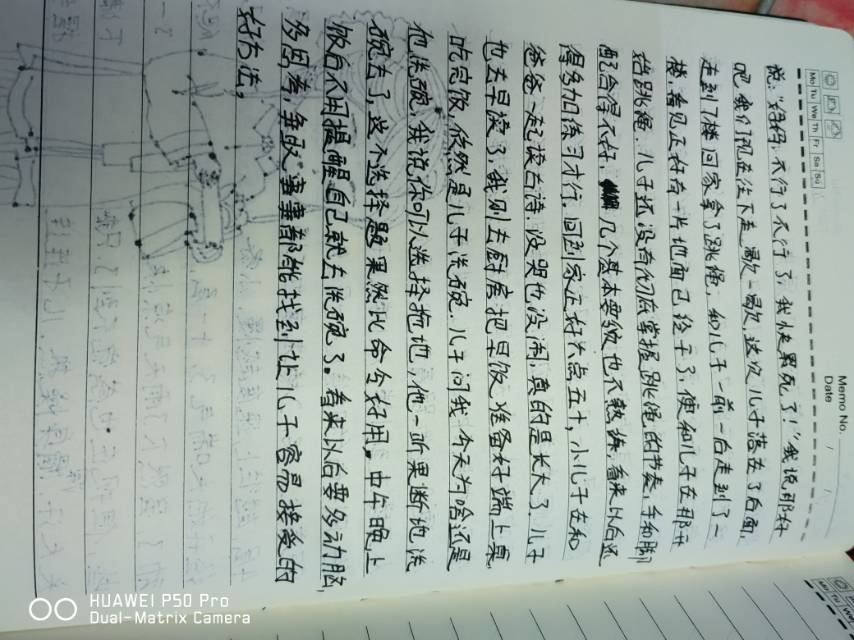 Memo No.
Date / /
Mo Tu We Th Fr Sa Su
说:"妈妈,不行了不行了,我快累死了!"我说那好
吧,我们现在往下走,歇一歇,这次儿子落在了后面,
走到了7楼回家拿了跳绳,和儿子一前一后走到了一
楼,看见正好有一片地面已经干了,便和儿子在那开
始跳绳,儿子还没有彻底掌握跳绳的节奏,手和脚
配合得不好,几个基本要领也不熟练,看来以后还
得多加练习才行。回到家正好六点五十,小儿子在和
爸爸一起读古诗,没哭也没闹,真的是长大了,儿子
也去早读了,我则去厨房把早饭准备好端上桌
吃完饭,依然是儿子洗碗,儿子问我今天为啥还是
他洗碗,我说你可以选择拖地,他一听果断地洗
碗去了,这个选择题果然比命令好用。中午晚上
饭后不用提醒自己就去洗碗了。看来以后要多动脑,
多思考,争取事事都能找到让儿子容易接受的
好方法。
Mo Tu We
HUAWEI P50 Pro
Dual-Matrix Camera